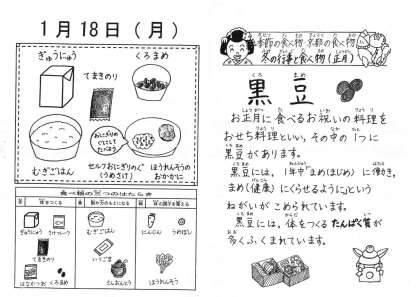 1月18日（月）
ぎゅうにゅう
くろまめ
てまきのり
おにぎりの
ぐにして
たべよう
むぎごはん
セルフおにぎりのぐ
（うめさけ）
ほうれんそうの
おかかに
食べ物の三つのはたらき
赤
体をつくる
黄
緑
体の調子を整える
ぎゅうにゅう
さけフレーク
てまきのり
はながつお
くろまめ
むぎごはん
いりごま
さんおんとう
にんじん
うめぼし
ほうれんそう
季節の食べ物 京都の食べ物
冬の行事と食べ物（正月）
くろ まめ
黒豆
お正月に食べるお祝いの料理を
おせち料理といい、その中の1つに
黒豆があります。
黒豆には、1年中“まめ（まじめ）に働き、
まめ（健康）にくらせるように”という
ねがいがこめられています。
黒豆には、体をつくるたんぱく質が
多くふくまれています。